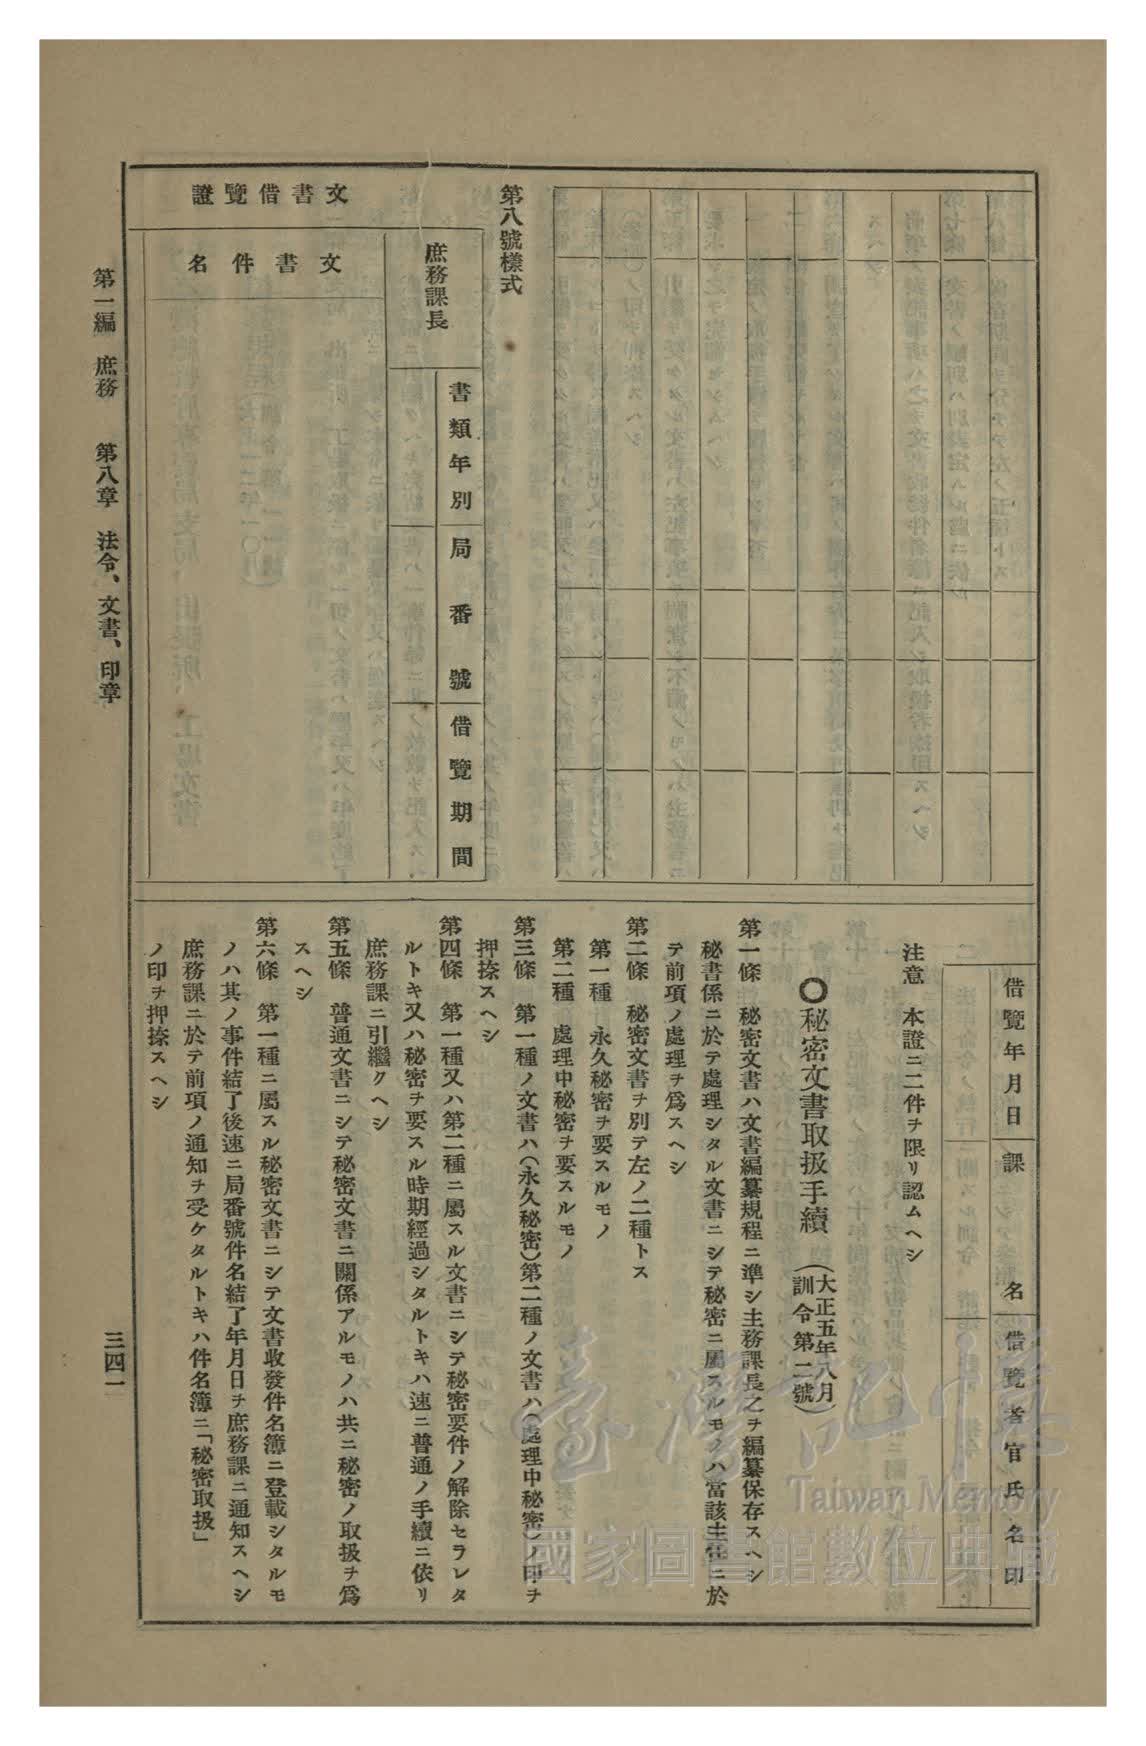 第八號樣式
庶務課長
書類年別
局番號
借覽期間
文書借覽證
文書件名
借覽年月日
課名
借覽者官氏名印
注意　本證ニ二件ヲ限リ認ムヘシ
〇秘密文書取扱手續（大正五年八月訓令第二號）
第一條　秘密文書ハ文書編纂規程ニ準シ主務課長之ヲ編纂保存スヘシ
秘書係ニ於テ處理シタル文書ニシテ秘密ニ屬スルモノハ當該主任ニ於
テ前項ノ處理ヲ爲スヘシ
第二條　秘密文書ヲ別テ左ノ二種トス
第一種　永久秘密ヲ要スルモノ
第二種　處理中秘密ヲ要スルモノ
第三條　第一種ノ文書ハ（永久秘密）第二種ノ文書ハ（處理中秘密）ノ印ヲ
押捺スヘシ
第四條　第一種又ハ第二種ニ屬スル文書ニシテ秘密要件ノ解除セラレタ
ルトキ又ハ秘密ヲ要スル時期經過シタルトキハ速ニ普通ノ手續ニ依リ
庶務課ニ引繼クヘシ
第五條　普通文書ニシテ秘密文書ニ關係アルモノハ共ニ秘密ノ取扱ヲ爲
スヘシ
第六條　第一種ニ屬スル秘密文書ニシテ文書收發件名簿ニ登載シタルモ
ノハ其ノ事件結了後速ニ局番號件名結了年月日ヲ庶務課ニ通知スヘシ
庶務課ニ於テ前項ノ通知ヲ受ケタルトキハ件名簿ニ「秘密取扱」
ノ印ヲ押捺スヘシ
第一編　庶務　第八章　法令、文書、印章
三四一
臺灣記憶
Taiwan Memory
國家圖書館數位典藏